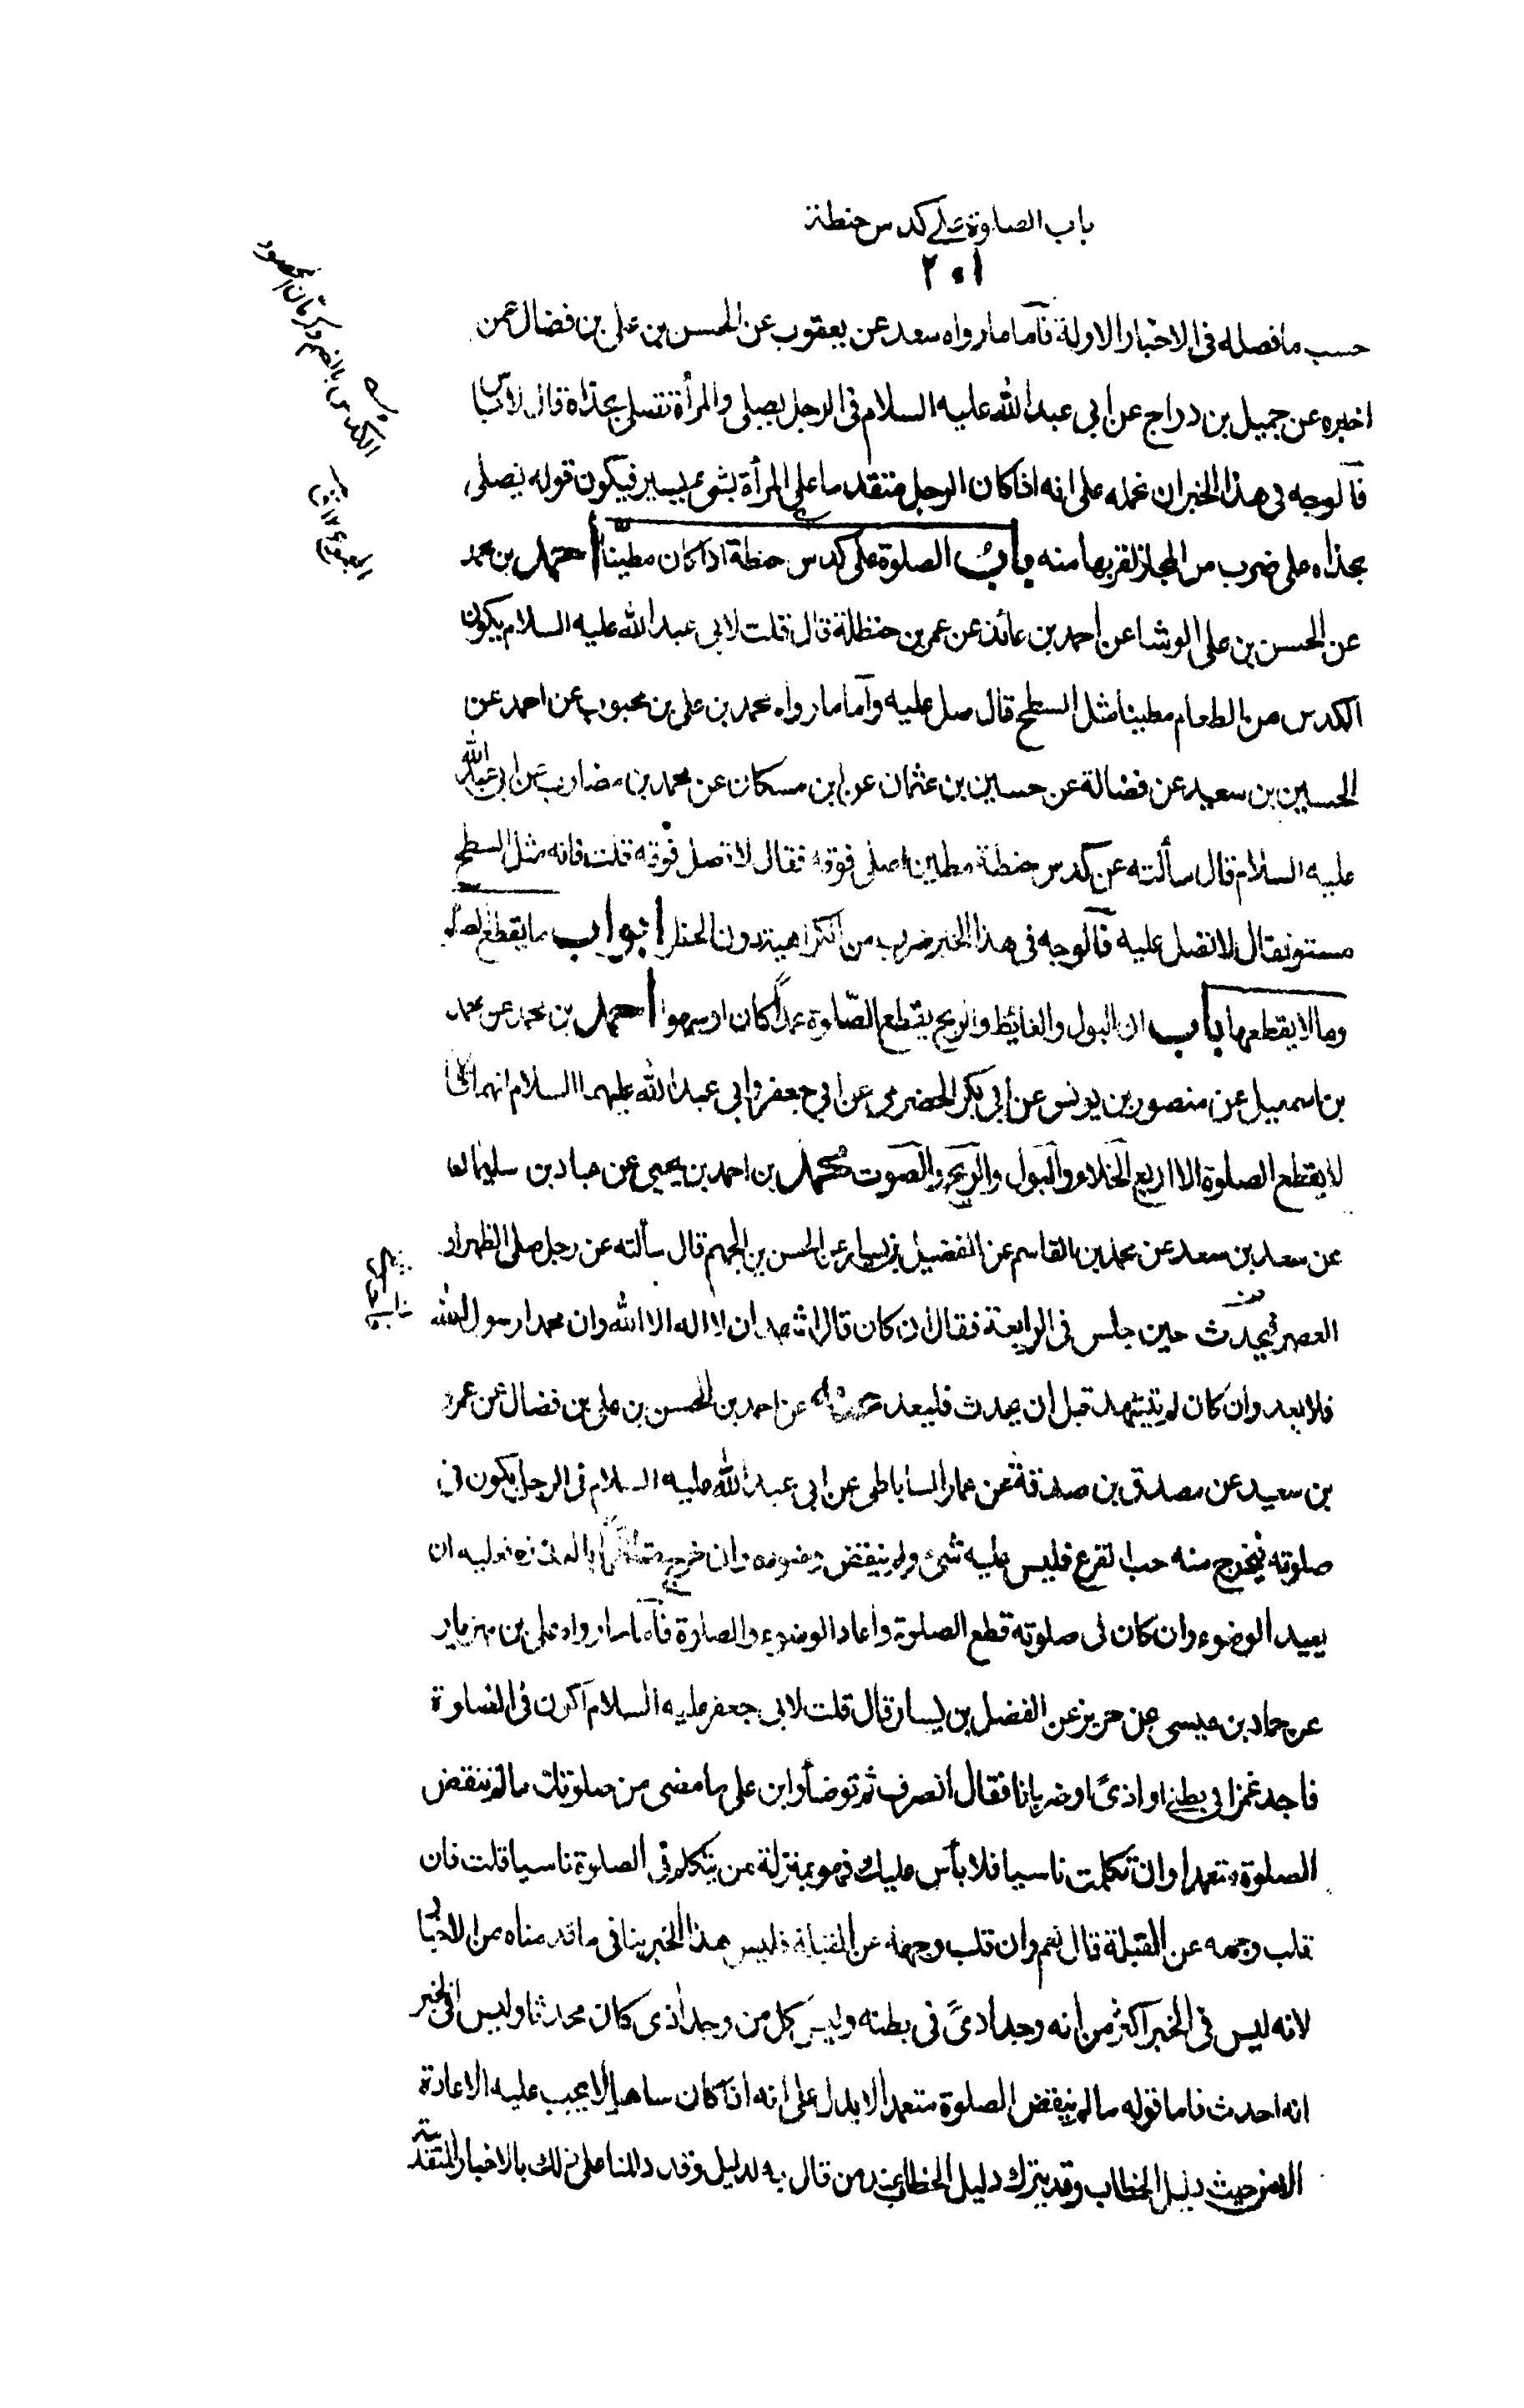 باب الصلوة على كدس حنطة
٢٠١
حسب ما فصله في الاخبار الاولة فآما ما رواه سعد عن يعقوب عن الحسن بن علي بن فضال عمن
اخبره عن جميل بن دراج عن ابي عبد الله عليه السلام في الرجل يصلي والمرأة تصلي بحذاه قال لا بأس
فآلوجه في هذا الخبر ان نحمله على انه اذا كان الرجل متقدما على المرأة بشيء يسير فيكون قوله يصلي
بحذاه على ضرب من المجاز لقربها منه باب الصلوة على كدس حنطة اذا كان مطينّا احمد بن محمد
عن الحسن بن علي الوشا عن احمد بن عائذ عن عمر بن حنظلة قال قلت لابي عبد الله عليه السلام يكون
الكدس من الطعام مطينا مثل السطح قال صل عليه وآما ما رواه محمد بن علي بن محبوب عن احمد عن
الحسين بن سعيد عن فضالة عن حسين بن عثمان عن ابن مسكان عن محمد بن مضارب عن ابي عبد الله
عليه السلام قال سألته عن كدس حنطة مطين اصلي فوقه فقال لا تصل فوقه قلت فانه مثل السطح
مستو فقال لا تصل عليه فآلوجه في هذا الخبر ضرب من الكراهية دون الحظر ابواب ما يقطع الصلوة
وما لا يقطعها باب ان البول والغايط والريح يقطع الصّلوة عمدًا كان او سهوا احمد بن محمد عن محمد
بن اسمعيل عن منصور بن يونس عن ابي بكر الحضرمي عن ابي جعفر وابي عبد الله عليهما السلام انهما كانا
لا يقطع الصلوة الا اربع الخلاء والبول والريح والصوت محمد بن احمد بن يحيى عن عباد بن سليمان
عن سعد بن سعد عن محمد بن القاسم عن الفضيل بن يسار عن الحسن بن الجهم قال سألته عن رجل صلى الظهر او
العصر فيحدث حين جلس في الرابعة فقال ان كان قال اشهد ان لا اله الا الله وان محمدا رسول الله
فلا يعد وان كان لم يتشهد قبل ان يحدث فليعد عن احمد بن الحسن بن علي بن فضال عن عمرو
بن سعيد عن مصدق بن صدقة عن عمار الساباطي عن ابي عبد الله عليه السلام في الرجل يكون في
صلوته فيخرج منه حب القرع فليس عليه شيء ولم ينقض وضوءه وان خرج متلطخا بالعذرة فعليه ان
يعيد الوضوء وان كان في صلوته قطع الصلوة واعاد الوضوء والصلوة فآما ما رواه علي بن مهزيار
عن حماد بن عيسى عن حريز عن الفضل بن يسار قال قلت لابي جعفر عليه السلام اكون في الصلوة
فاجد غمزا في بطني او اذىً او ضربانا فقال انصرف ثم توضأ وابن على ما مضى من صلوتك ما لم ينقض
الصلوة متعمدا وان تكلمت ناسيا فلا بأس عليك فهو بمنزلة من يتكلم في الصلوة ناسيا قلت فان
قلب وجهه عن القبلة قال نعم وان قلب وجهه عن القبلة فليس هذا الخبر ينافي ما قدمناه من الاخبار
لانه ليس في الخبر اكثر من انه وجد اذىً في بطنه وليس كل من وجد اذى كان محدثا وليس في الخبر
انه احدث فاما قوله ما لم ينقض الصلوة متعمدا لا يدل على انه اذا كان ساهيا لا يجب عليه الاعادة
الا من حيث دليل الخطاب وقد يترك دليل الخطاب عند من قال به لدليل وقد دللنا على ذلك بالاخبار المتقدمة
الكدس بالضم وكرمان